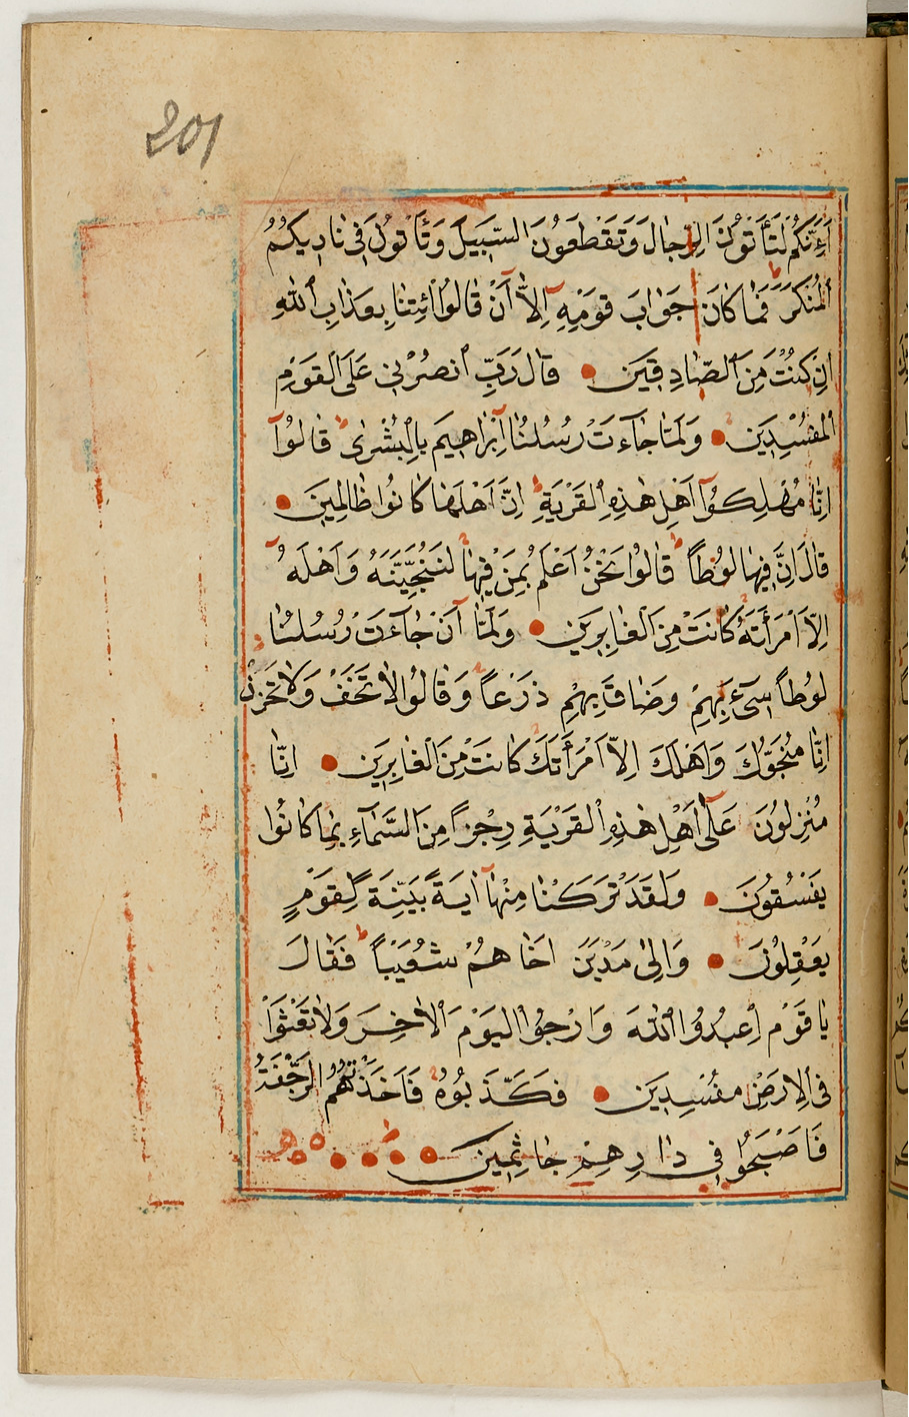 201
أَئِنَّكُمْ لَتَأْتُونَ الرِّجَالَ وَتَقْطَعُونَ السَّبِيلَ وَتَأْتُونَ فِي نَادِيكُمُ
الْمُنْكَرَ فَمَا كَانَ جَوَابَ قَوْمِهِ اِلَّا آَنْ قَالُوا ائْتِنَا بِعَذَابِ اللهِ
اِنْ كُنْتَ مِنَ الصَّادِقِينَ قَالَ رَبِّ انْصُرْنِي عَلَى الْقَوْمِ
الْمُفْسِدِينَ وَلَمَّا جَاءَتْ رُسُلُنَا اِبْرَاهِيمَ بِالْبُشْرَى قَالُوا
اِنَّا مُهْلِكُوا اَهْلِ هٰذِهِ الْقَرْيَةِ اِنَّ اَهْلَهَا كَانُوا ظَالِمِينَ
قَالَ اِنَّ فِيهَا لُوطاً قَالُوا نَحْنُ اَعْلَمُ بِمَنْ فِيهَا لَنُنَجِّيَنَّهُ وَاَهْلَهُ
اِلَّا امْرَأَتَهُ كَانَتْ مِنَ الْغَابِرِينَ وَلَمَّا آَنْ جَاءَتْ رُسُلُنَا
لُوطاً سِيءَ بِهِمْ وَضَاقَ بِهِمْ ذَرْعاً وَقَالُوا لَا تَخَفْ وَلَا تَحْزَنْ
اِنَّا مُنَجُّوكَ وَاَهْلَكَ اِلَّا امْرَأَتَكَ كَانَتْ مِنَ الْغَابِرِينَ اِنَّا
مُنْزِلُونَ عَلَى اَهْلِ هٰذِهِ الْقَرْيَةِ رِجْزاً مِنَ السَّمَاءِ بِمَا كَانُوا
يَفْسُقُونَ وَلَقَدْ تَرَكْنَا مِنْهَا اٰيَةً بَيِّنَةً لِقَوْمٍ
يَعْقِلُونَ وَاِلَى مَدْيَنَ اَخَاهُمْ شُعَيْباً فَقَالَ
يَا قَوْمِ اعْبُدُوا اللهَ وَارْجُوا الْيَوْمَ الْاٰخِرَ وَلَا تَعْثَوْا
فِي الْاَرْضِ مُفْسِدِينَ فَكَذَّبُوهُ فَاَخَذَتْهُمُ الرَّجْفَةُ
فَاَصْبَحُوا فِي دَارِهِمْ جَاثِمِينَ